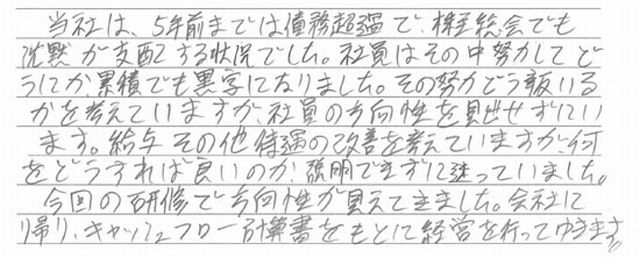 当社は、5年前までは債務超過で、株主総会でも
沈黙が支配する状況でした。社員はその中努力してど
うにか、累積でも黒字になりました。その努力どう報いる
かを考えていますが、社員の方向性を見出せずにい
ます。給与その他待遇の改善を考えていますが、何
をどうすれば良いのか、説明できずに迷っていました。
今回の研修で方向性が見えてきました。会社に
帰り、キャッシュフロー計算書をもとに経営を行ってゆきます。